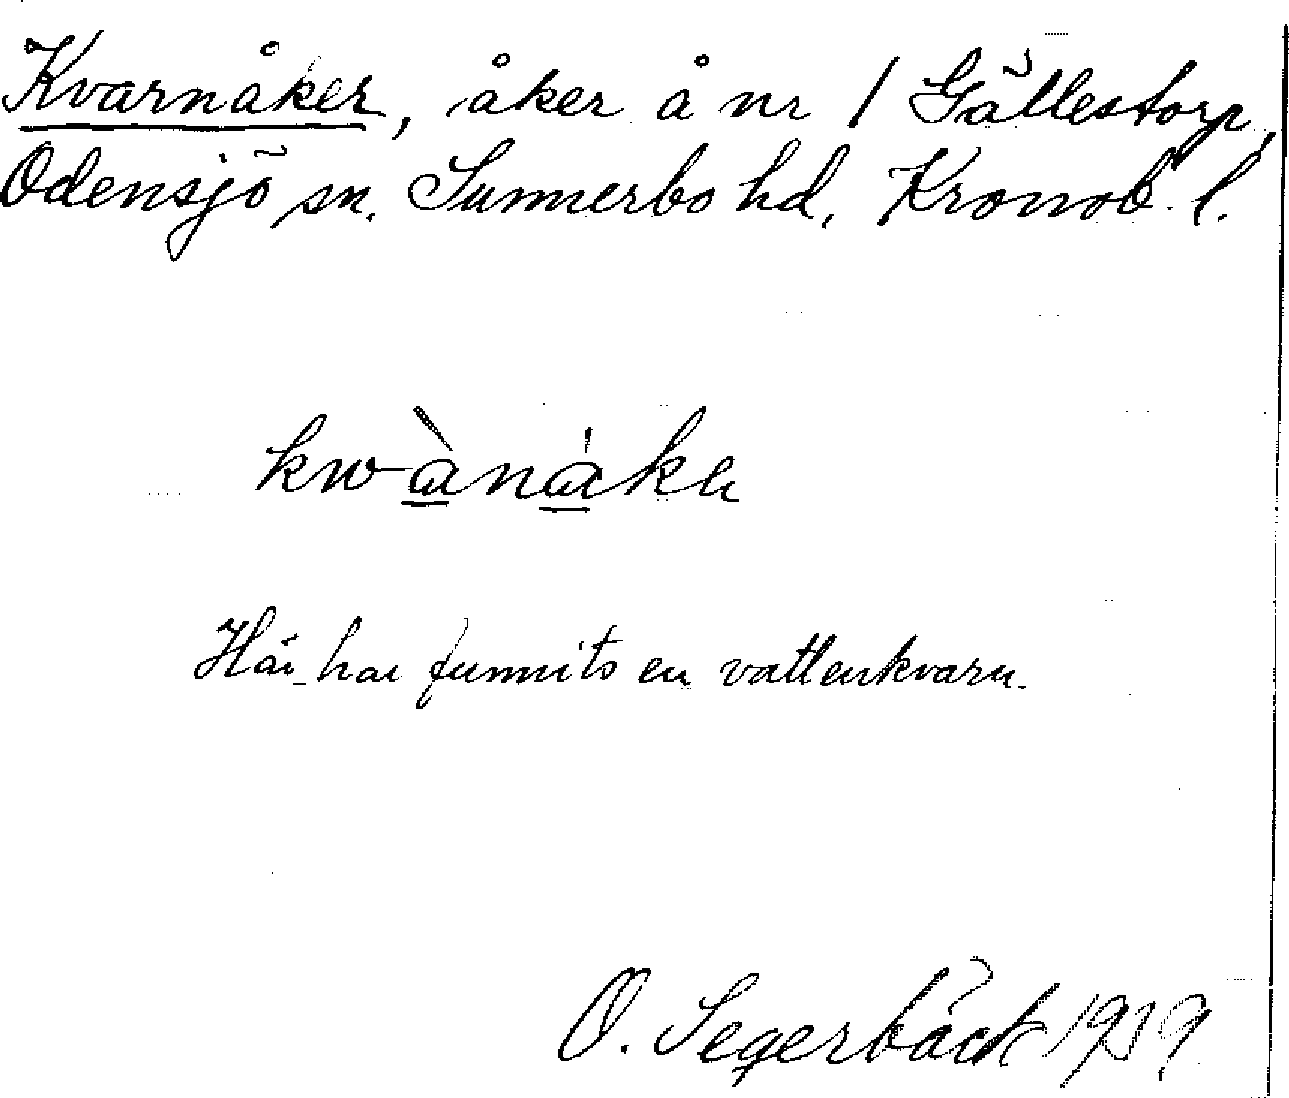 Kvarnåker, åker å nr 1 Gällestorp,
Odensjö sn. Sunnerbo hd, Kronob. l.
kwànáka
Här har funnits en vattenkvarn.
O. Segerbäck 1939